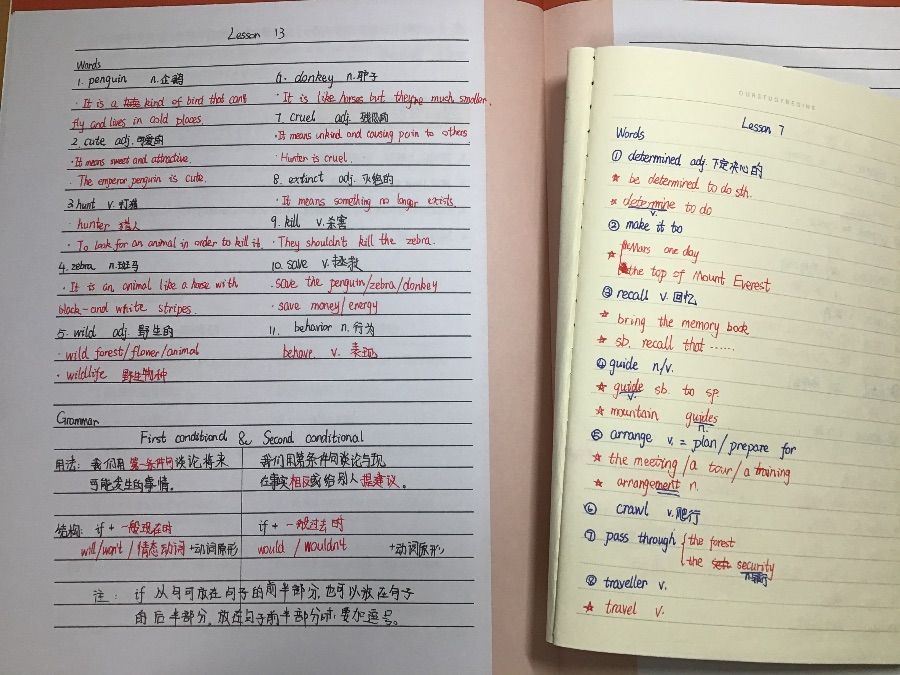 Lesson 13
Words
1. penguin n.企鹅
· It is a kind of bird that can't
fly and lives in cold places.
2. cute adj. 可爱的
· It means sweet and attractive.
· The emperor penguin is cute.
3. hunt v. 打猎
· hunter 猎人
· To look for an animal in order to kill it.
4. zebra n. 斑马
· It is an animal like a horse with
black-and white stripes.
5. wild adj. 野生的
· wild forest/flower/animal
· wildlife 野生物种
6. donkey n. 驴子
· It is like horses but they're much smaller.
7. cruel adj. 残忍的
· It means unkind and causing pain to others
· Hunter is cruel.
8. extinct adj. 灭绝的
· It means something no longer exists.
9. kill v. 杀害
· They shouldn't kill the zebra.
10. save v. 拯救
· save the penguin/zebra/donkey
· save money/energy
11. behavior n. 行为
behave v. 表现
Grammar
First conditional & Second conditional
用法: 我们用第一条件句谈论将来
可能发生的事情。
我们用第条件句谈论与现
在事实相反或给别人提建议。
结构: if + 一般现在时
will/won't/情态动词+动词原形
if + 一般过去时
would / wouldn't +动词原形
注: if 从句可放在句子的前半部分,也可以放在句子
的后半部分,放在句子前半部分时,要加逗号。
OURSTUDYBEGINS
Lesson 7
Words
① determined adj. 下定决心的
★ be determined to do sth.
★ determine to do
v.
② make it to
★ Mars one day
the top of Mount Everest
③ recall v. 回忆
★ bring the memory back
★ sb. recall that ······
④ guide n/v.
★ guide sb. to sp.
v.
★ mountain guides
n.
⑤ arrange v. = plan/prepare for
★ the meeting/a tour/a training
★ arrangement n.
⑥ crawl v. 爬行
⑦ pass through { the forest
the security
⑧ traveller v.
★ travel v.